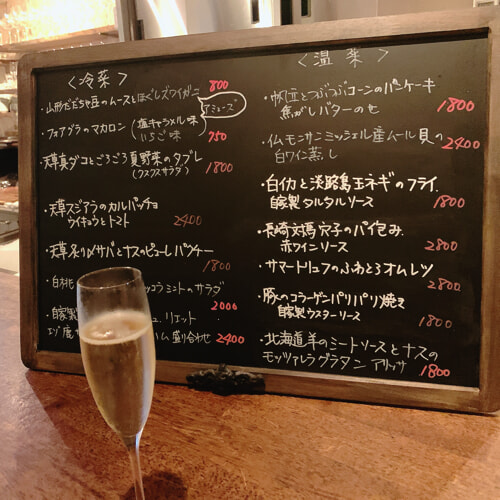 〈冷菜〉
・山形だだちゃ豆のムースとほぐしズワイガニ 800
アミューズ
・フォアグラのマカロン (塩キャラメル味
いちご味 750
・天草真ダコとごろごろ夏野菜のタブレ
(クスクスサラダ) 1800
・天草スジアラのカルパッチョ
ライチョウとトマト 2400
・天草〆サバとナスのピューレ 1800
・白桃 ミントのサラダ
2000
・自家製 リエット
エゾ鹿 ハム 盛り合わせ 2400
〈温菜〉
・帆立とつぶつぶコーンのパンケーキ
焦がしバターのせ 1800
・仏モンサンミッシェル産ムール貝の
白ワイン蒸し 2400
・白イカと淡路島玉ネギのフライ
自家製タルタルソース 1800
・長崎対馬穴子のパイ包み
赤ワインソース 2800
・サマートリュフのふわとろオムレツ
2800
・豚のコラーゲンパリパリ焼き
自家製ウスターソース 1800
・北海道羊のミートソースとナスの
モッツァレラグラタン アリッサ 1800